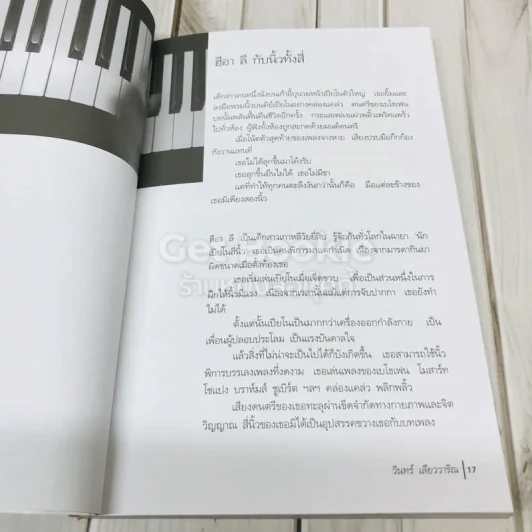 ฮีอา ลี กับนิ้วทั้งสี่
เด็กสาวคนหนึ่งนั่งบนเก้าอี้บุนวมหน้าเปียโนตัวใหญ่ เธอยิ้มและ
ลงมือพรมนิ้วบนคีย์เปียโนอย่างคล่องแคล่ว ดนตรีของเบโธเฟน
บทนั้นพลันฟื้นคืนชีวิตอีกครั้ง กระแสเพลงแผ่วพลิ้วเพริศแพร้ว
ไปทั่วห้อง ผู้ฟังทั้งห้องถูกสะกดด้วยมนต์ดนตรี
เมื่อโน้ตตัวสุดท้ายของเพลงจางหาย เสียงปรบมือก็กึกก้อง
กังวานแทนที่
เธอไม่ได้ลุกขึ้นมาโค้งรับ
เธอลุกขึ้นยืนไม่ได้ เธอไม่มีขา
แต่ที่ทำให้ทุกคนตะลึงงันกว่านั้นก็คือ มือแต่ละข้างของ
เธอมีเพียงสองนิ้ว
ฮีอา ลี เป็นเด็กสาวเกาหลีวัยยี่สิบ รู้จักกันทั่วโลกในฉายา 'นัก
เปียโนสี่นิ้ว' เธอเป็นคนพิการมาแต่กำเนิด เนื่องจากมารดากินยา
ผิดขนาดเมื่อตั้งท้องเธอ
เธอเริ่มเล่นเปียโนเมื่อเจ็ดขวบ เพื่อเป็นส่วนหนึ่งในการ
ฝึกให้นิ้วมีแรง เนื่องจากเวลานั้นแม้แต่การจับปากกา เธอยังทำ
ไม่ได้
ตั้งแต่นั้นเปียโนเป็นมากกว่าเครื่องออกกำลังกาย เป็น
เพื่อนผู้ปลอบประโลม เป็นแรงบันดาลใจ
แล้วสิ่งที่ไม่น่าจะเป็นไปได้ก็บังเกิดขึ้น เธอสามารถใช้นิ้ว
พิการบรรเลงเพลงที่งดงาม เธอเล่นเพลงของเบโธเฟน โมสาร์ท
โชแปง บราห์มส์ ชูเบิร์ต ฯลฯ คล่องแคล่ว พลิกพลิ้ว
เสียงดนตรีของเธอทะลุผ่านขีดจำกัดทางกายภาพและจิต
วิญญาณ สี่นิ้วของเธอมิได้เป็นอุปสรรคขวางเธอกับบทเพลง
วินทร์ เลียววาริณ | 17